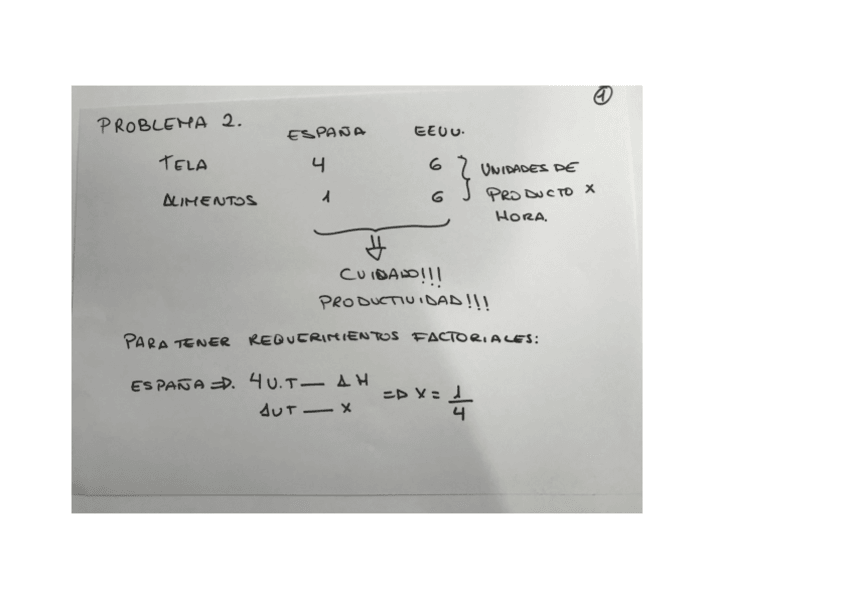 ①
PROBLEMA 2.
ESPAÑA EEUU.
TELA 4 6 UNIDADES DE
ALIMENTOS 1 6 PRODUCTO x
HORA.
CUIDADO!!!
PRODUCTIVIDAD!!!
PARA TENER REQUERIMIENTOS FACTORIALES:
ESPAÑA ⇒. 4 U.T — 1 H
1 UT — x ⇒ x = 1/4